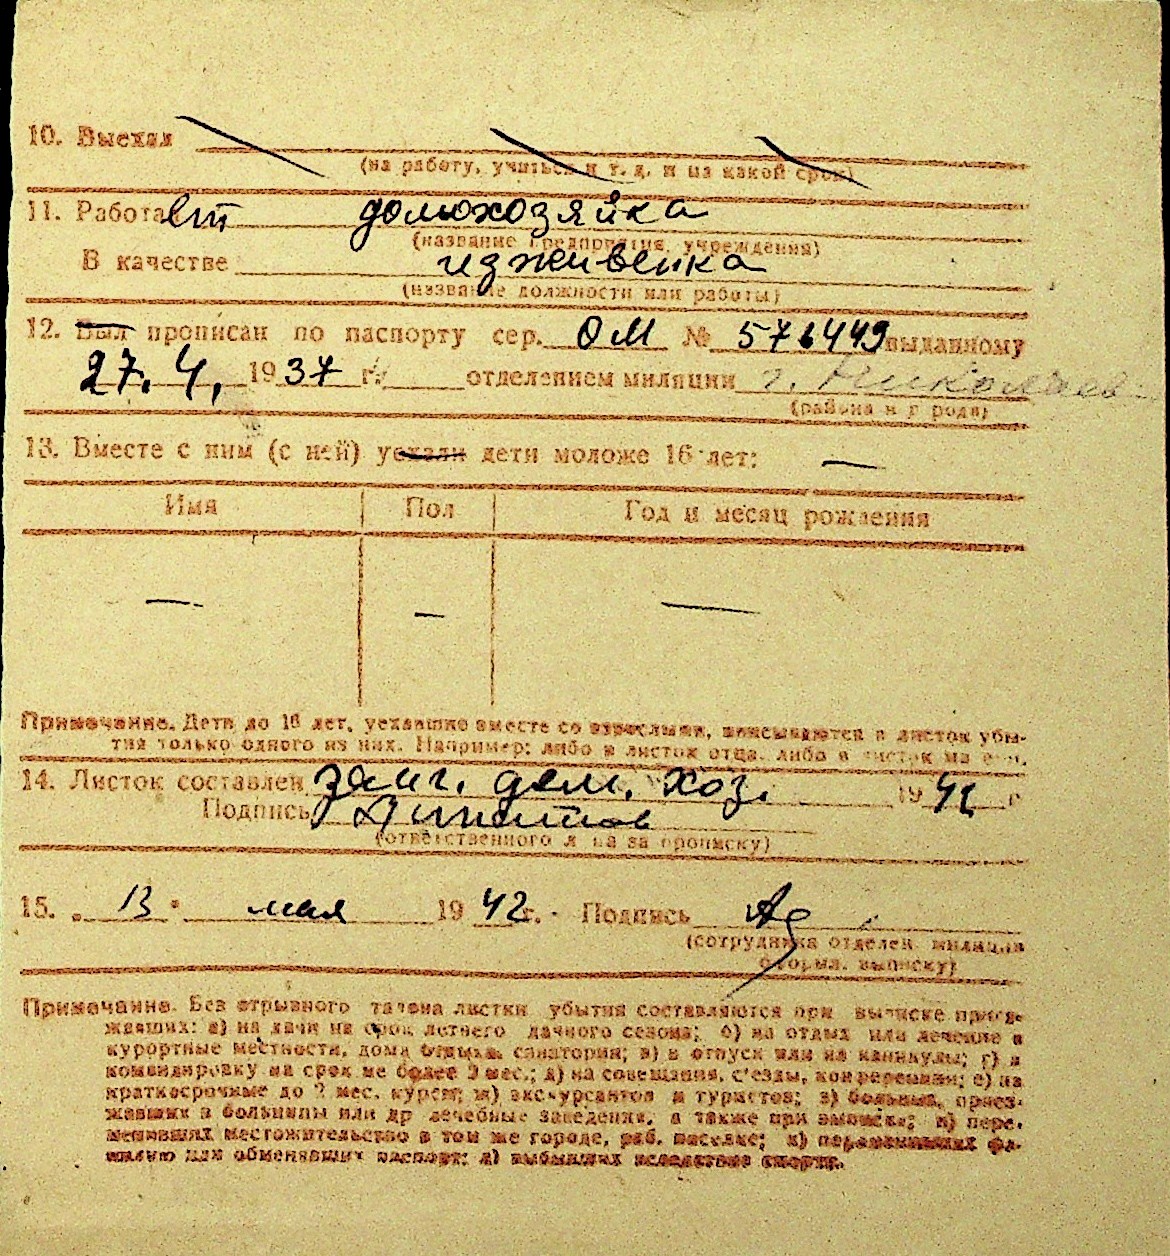 10. Выехал
(на работу, учиться и т. д. и на какой срок)
11. Работает домохозяйка
(название предприятия, учреждения)
В качестве иждивенка
(название должности или работы)
12. Был прописан по паспорту сер. ОМ № 571449 выданному
27.4, 1937 г. отделением милиции г. Николаев
(района и города)
13. Вместе с ним (с ней) уехали дети моложе 16 лет: —
Имя Пол Год и месяц рождения
— — —
Примечание. Дети до 16 лет, уехавшие вместе со взрослыми, вписываются в листок убы-
тия только одного из них. Например: либо в листок отца, либо в листок матери.
14. Листок составлен дом. хоз. 1942 г
Подпись
(ответственного лица за прописку)
15. „13" мая 1942 г. Подпись
(сотрудника отделен. милиции
оформл. выписку)
Примечание. Без отрывного талона листки убытия составляются при выписке приез-
жавших: а) на дачи на срок летнего дачного сезона; б) на отдых или лечение в
курортные местности, дома отдыха, санатории; в) в отпуск или на каникулы; г) в
командировку на срок не более 2 мес.; д) на совещания, с'езды, конференции; е) на
краткосрочные до 2 мес. курсы; ж) экскурсантов и туристов; з) больных, приез-
жавших в больницы или др лечебные заведения, а также при выписке; и) пере-
менивших местожительство в том же городе, раб. поселке; к) переменивших фа-
милию или обменявших паспорт; л) выбывших вследствие смерти.